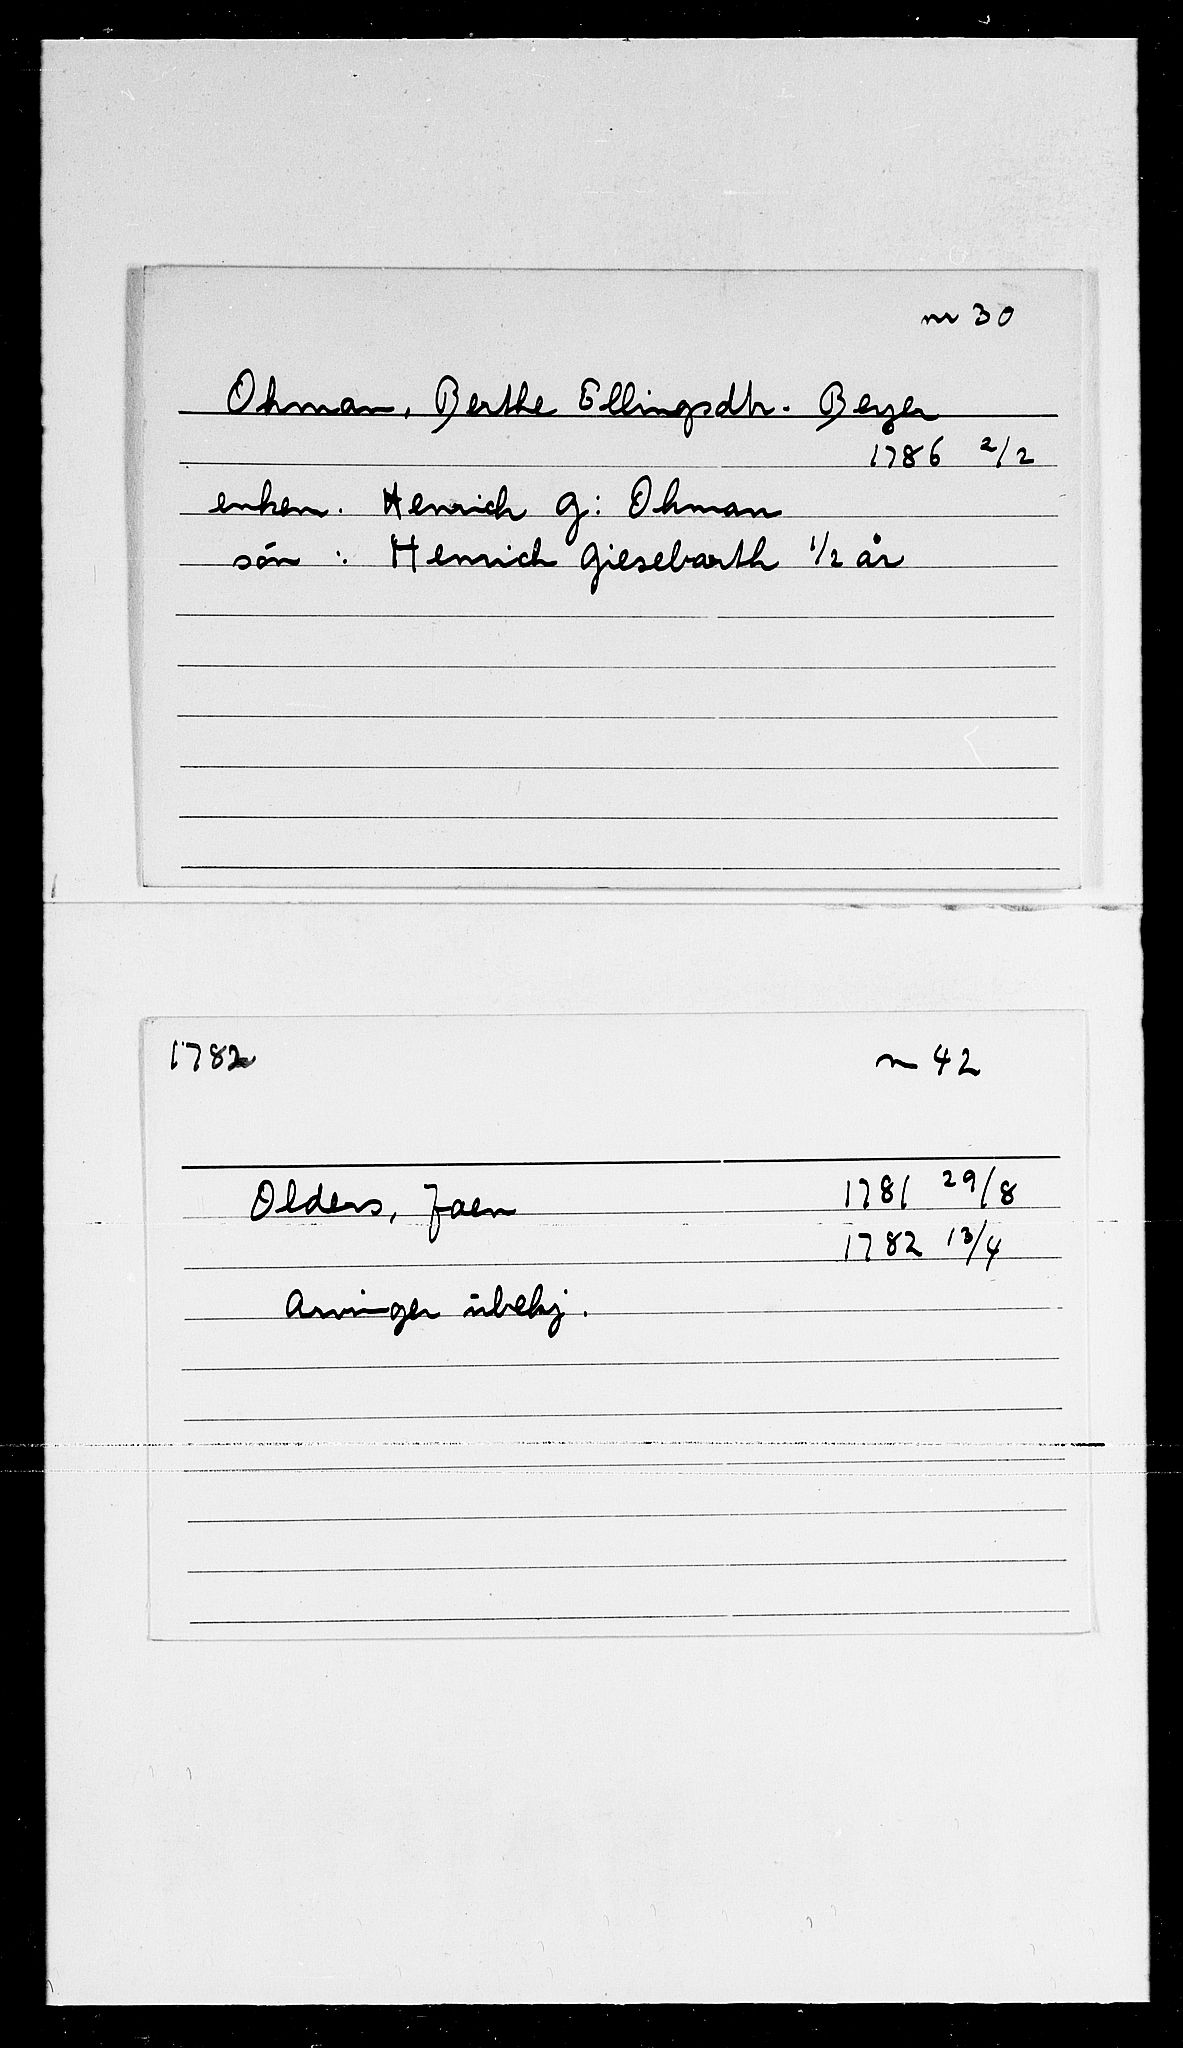 nr 30
Ohman, Berthe Ellingsdtr. Beyer
1786 2/2
enkem. Henrich G: Ohman
sön : Henrich Giesebarth 1/2 år
1782
nr 42
Olders, Jaen 1781 29/8
1782 13/4
Arvinger ubekj.